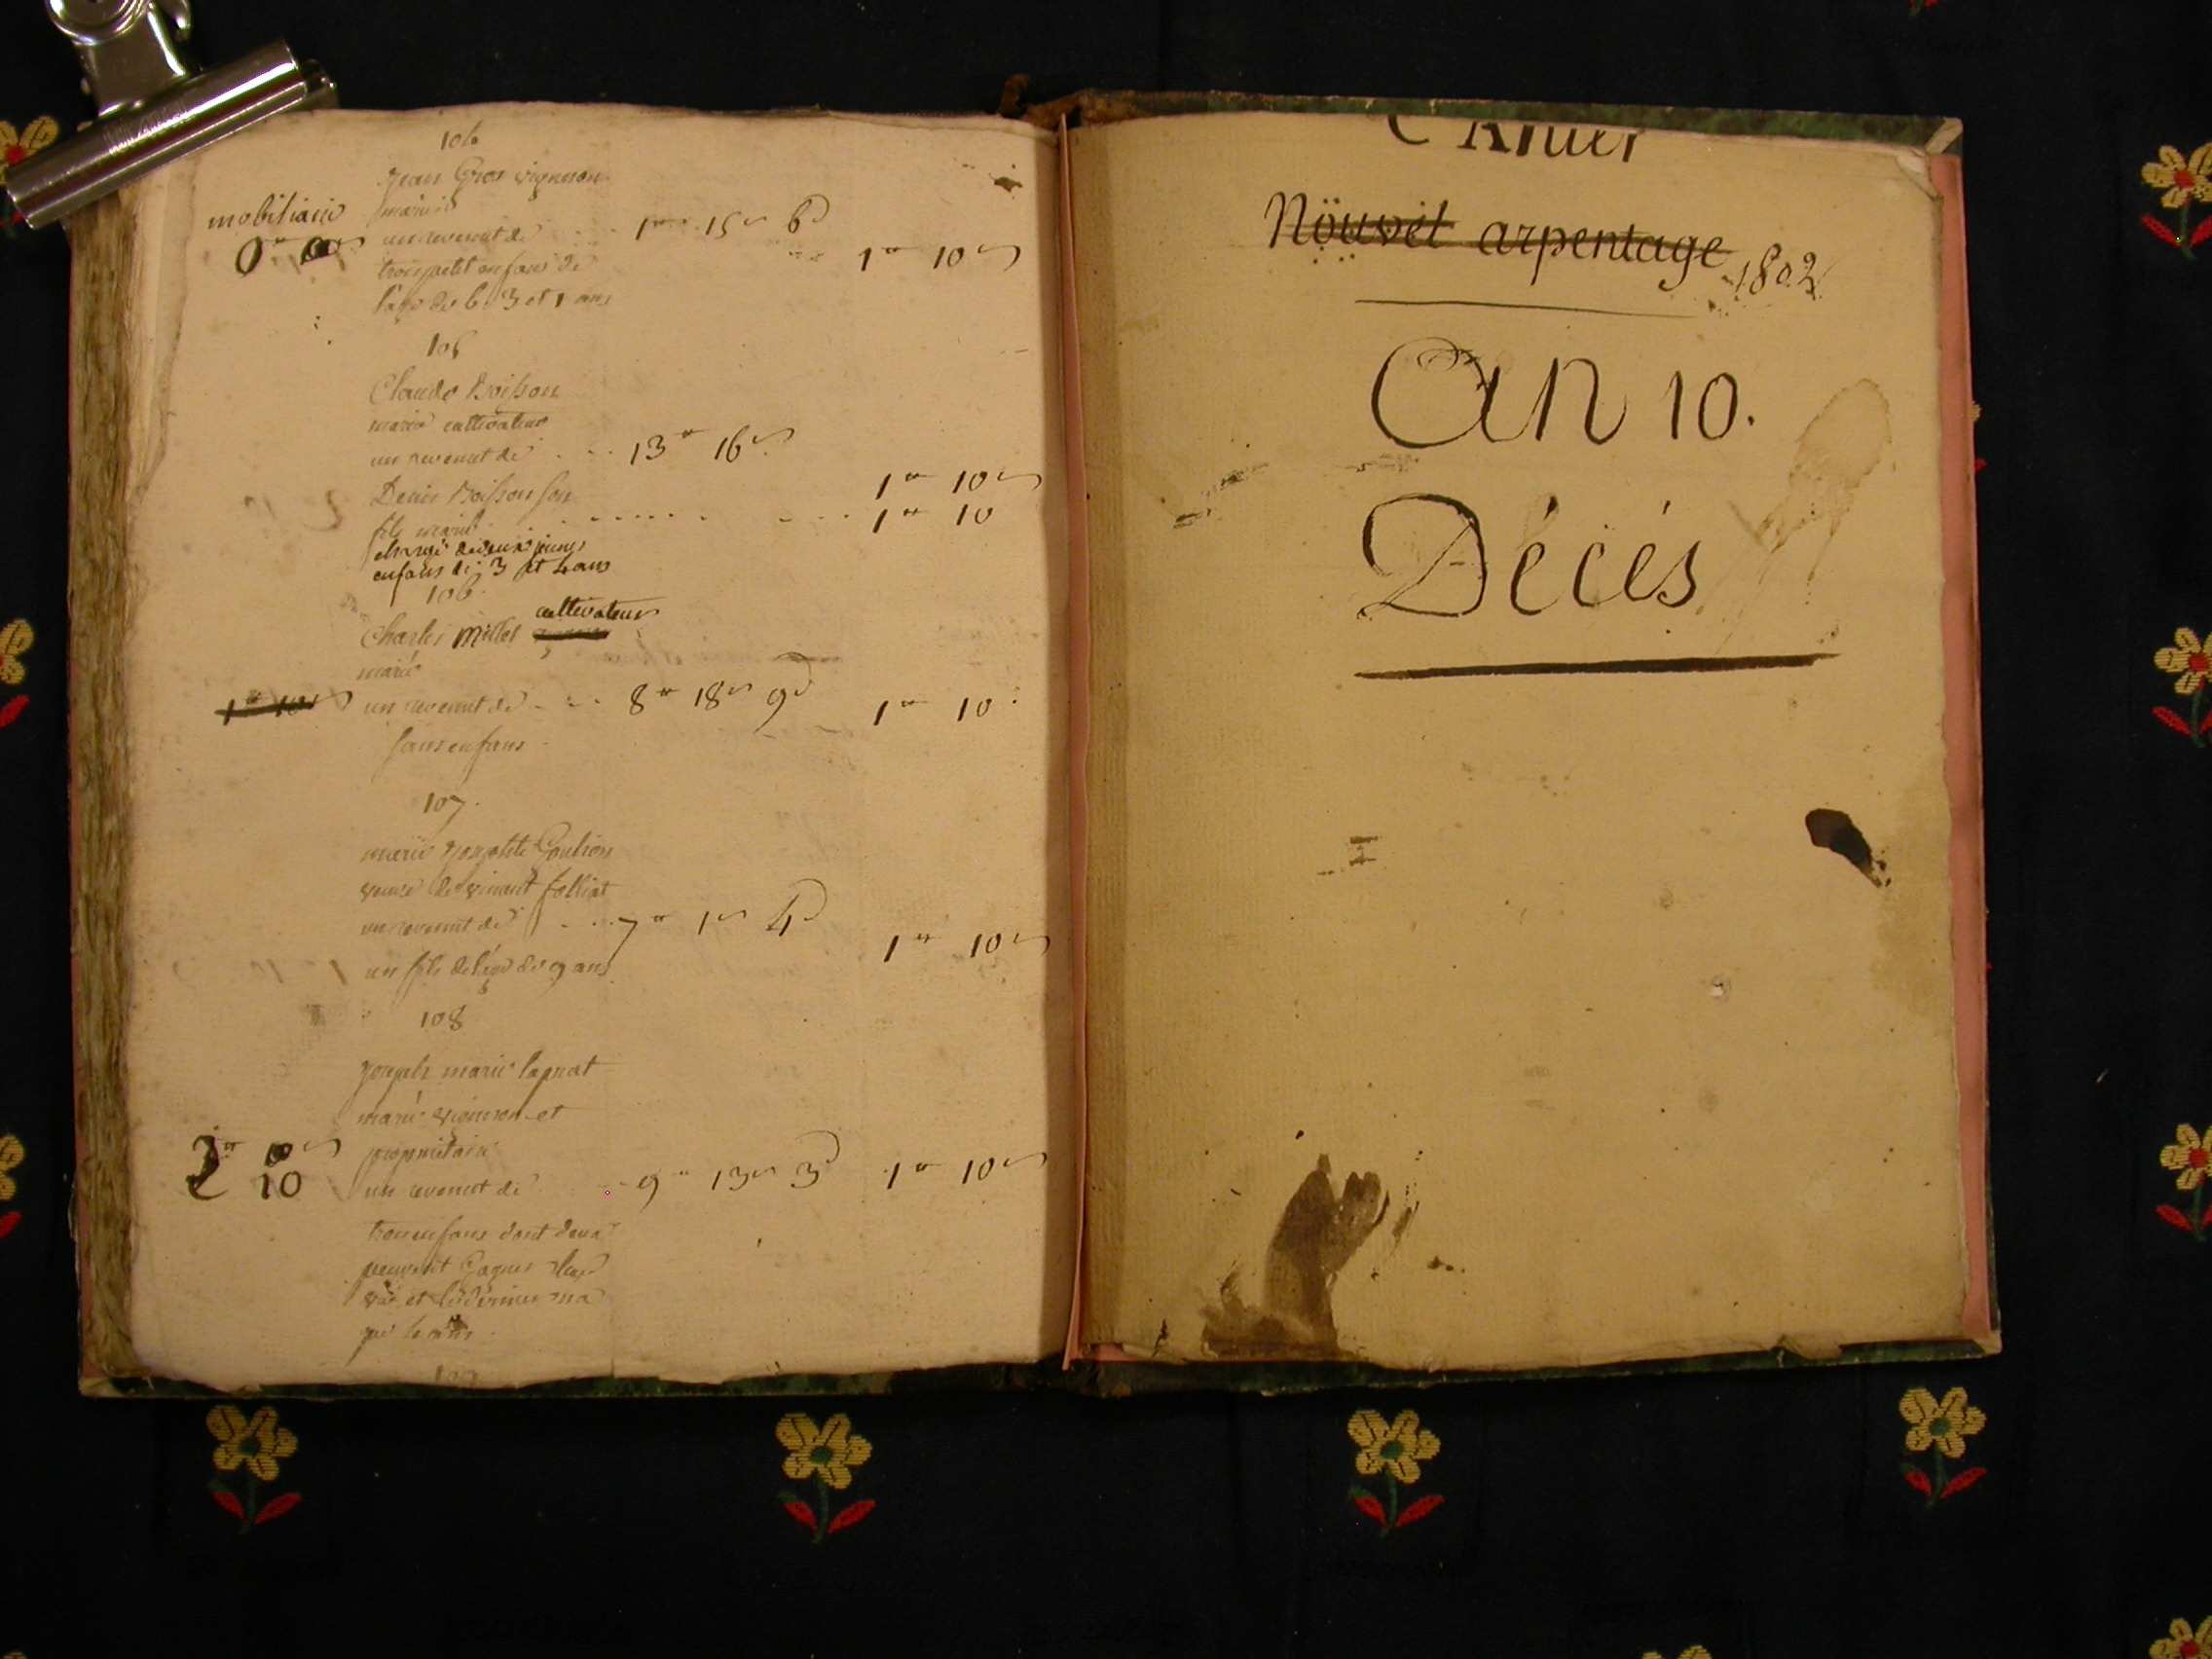 104
Jean Gros vigneron
mobiliaire marié
un revenut de 1 15 6
1 10
trois petit enfans de
l'age de 6, 3 et 1 ans
105
Claude Boisson
marié cultivateur
un revenut de 13 16
1 10
Denis Boisson son
fils marié 1 10
chargé de deux jeunes
enfans de 3 et 4 ans
106
Charles Millet cultivateur
marié
un revenut de 8 18 9 1 10
sans enfans
107
marie
veuve de vincent folliat
un revenut de 7 1 4
1 10
un fils de l'age de 9 ans
108
joseph marie
marié vigneron et
propriétaire
2 10 un revenut de 9 13 3 1 10
trois enfans dont deux
peuvent Gagner leur
vie et le dernier n'a
que 4 ans
CAhier
Nouvel arpentage 1802
An 10.
Décés